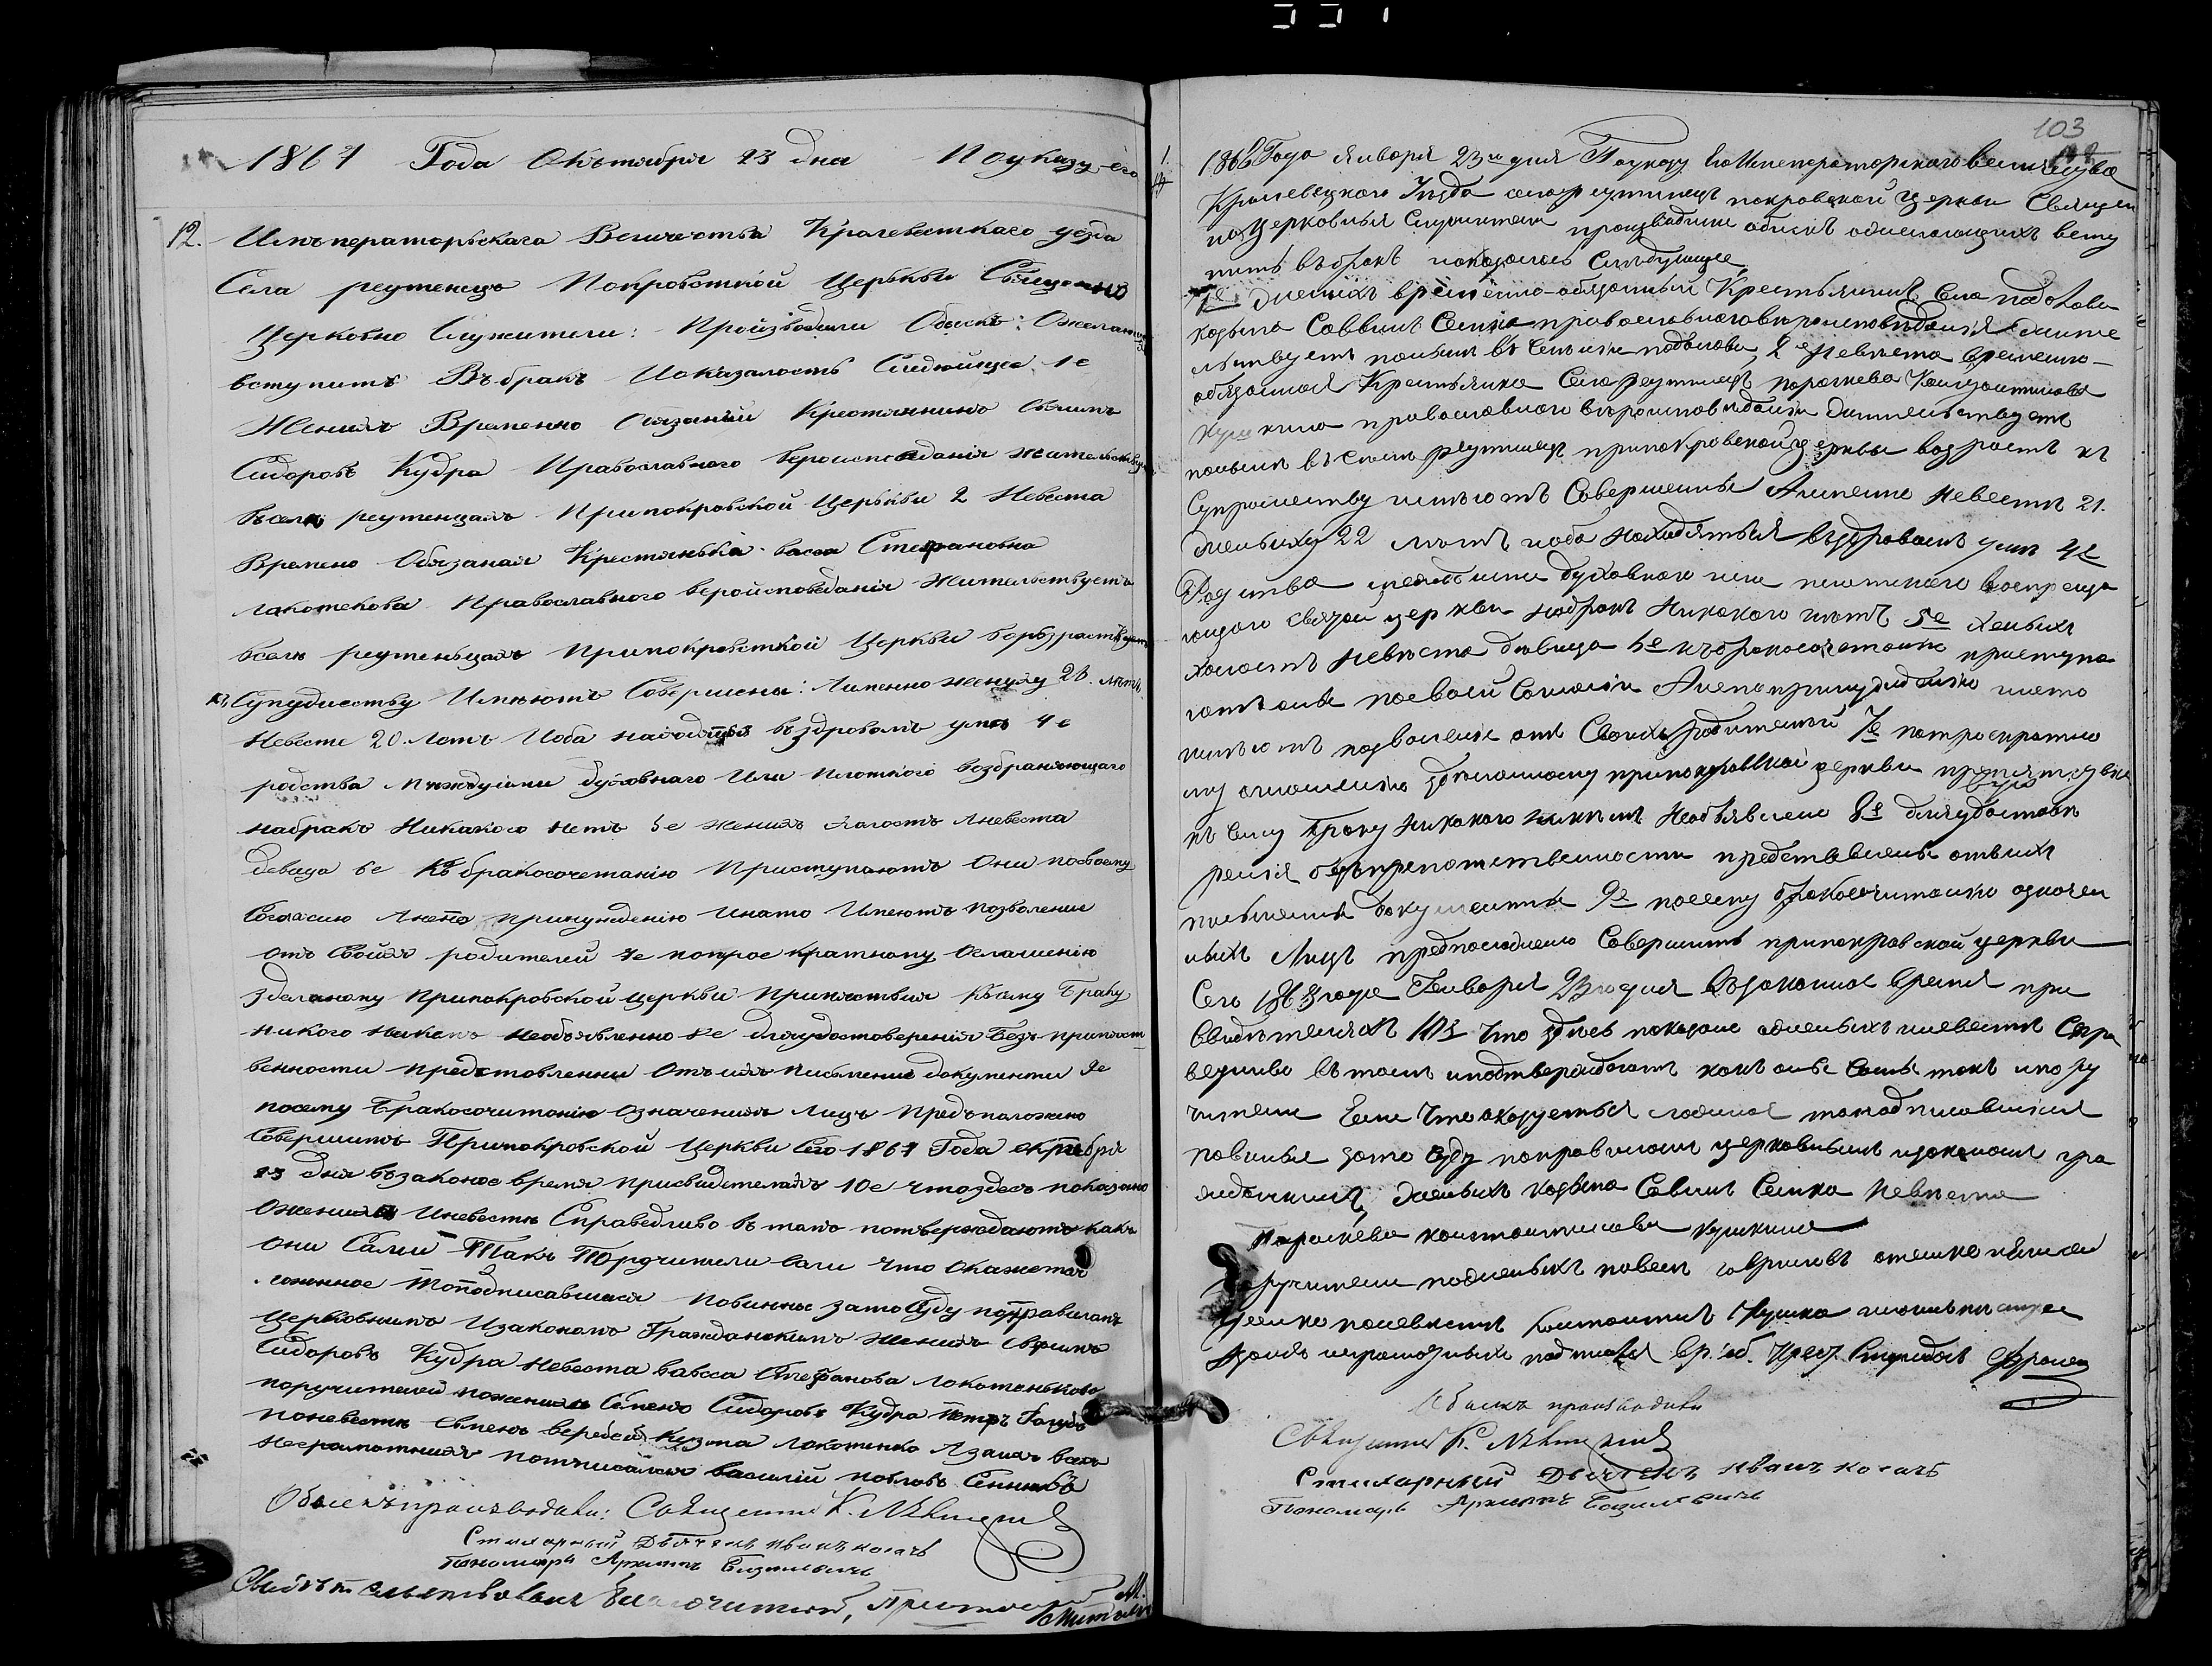 103
1867 Года Октября 23 дня Поуказу его
12. Императорьскага Величества Кралеветскаго уезда
Села реутенецъ Покровсткой Церькви Священно
Церковно Служители: Произъводили Обыскъ: Ожелающ
вступить Въбракъ Иоказалость Следюйщее 1е
Женихъ Временно Обязаный Крестянинъ
Сидоровъ Кудра Православного Вероисповеданія жительствуе
Вселе реутенцахъ Припокровской Церькви 2 Невеста
Времено Обязаная Крестянька васса Стефановна
лакотекова Православного веройсповеданія Жительствуетъ
Вселе реутеньцахъ Припокровсткой Церькви
Супудисству Имеютъ Совершены: Аименно жениху 23. летъ
Невесте 20. Летъ Иоба находятся въздровомъ уме 4е
родства между ими духовнаго Или плоткого возбраняющаго
набракъ Никакого нетъ 5е женихъ холостъ Аневеста
девица 6е Къ бракосочетанію Приступаютъ Они посвоему
Согласию Анепо принуждению Инато Имеютъ позволение
Отъ Свойхъ родителей 7е потрое кратному Оглашению
зделаному Припокровской церкви Припятствия Къему браку
никого Никемъ Необъявленно 8е длеудостоверения Безъ припятст
венности Представленни Отъ ихъ письмение документи 9е
посему Бракосочитонию Означенимъ Лицъ Предъположено
Совершить Припокровской Церкви Сего 1867 Года октября
23 дня възаконое время присвидетеляхъ 10е чтоздесь показано
Оженихе Иневесте Справедливо въ томъ потверждаютъ какъ
Они Сами Такъ Поручители Если что Окажется
ложнное Топодписавшися Повинны зато Суду поправиламъ
Церковнимъ Изаконамъ Гражданскимъ женихъ
Сидоровъ Кудра Невеста васса Стефанова Локотонькова
поручителей пожениха Семенъ Сидоровъ Кудра Петръ
поневесте Кузма локотенко Азанихъ всехъ
Неграмотнихъ потписался василий
Обыскъ производили: Священникъ К.
Стихарный Дьячекъ Иванъ Когачъ
Пономарь Архипъ Базилевичъ
Свидетельствовалъ Благочинный,
1868 Года января 23 дня Поуказу Его Императорского величества
Кролевецкого Уезда села реутинецъ покровской церкви Священ
но Церковныя Служители производили обыскъ ожелающихъ всту
пить въбракъ иоказалось Следующее
1е женихъ временно-обязанный Крестьянинъ Села подолова
козьма Саввинъ Сенька православноговероисповеданія жите
льствуетъ 2е Невеста временно-
обязанная Крестьянка Села реутинецъ Параскева Константинова
православного вероисповеданія жительствуетъ
въ селе реутинцахъ припокровской церкви возрастъ къ
Супружеству имеютъ Совершенный Аименно невеста 21.
жениху 22 летъ иоба находятъся въздравомъ уме 4е
Родства между ими духовного или плотского воспреща
ющаго святой церкви набракъ Никакого нетъ 5е женихъ
холостъ невеста девица 6е къбракосочетанию приступа
ютъ они посвоей Согласіи Анепопринуждению инато
имеютъ позволение отъ Своихъ родителей 7е потроекратно
му оглашению зделанному припокровской церкви препятствие
къ Сему браку никакого никемъ Необъявлено 8е дляудостове
рения безпрепятственности представлены отънихъ
письменные документы 9е посему бракосочитанию означен
ныхъ Лицъ предположено Совершить припокровской церкви
Сего 1868 года Генваря 23го дня възаконное время при
Свидетеляхъ 10е Что здесь показано оженихе иневесте Спра
ведливо въ томъ иподтверждаютъ какъ оне Сами такъ ипору
чители Если Что окажеться ложное топодписавшиеся
повинны зато Суду поправиламъ церковнымъ изаконамъ гра
жданскимъ женихъ Козьма Савинъ Сенька невеста
Параскева константинова
поручители поженихе павелъ
поневесте Константинъ
неграмотныхъ подписался вр. об. Крест. Спиридонъ
Обыскъ производили
Священникъ К.
Стихарный Дьячекъ Иванъ Когачъ
Пономарь Архипъ Базилевичъ